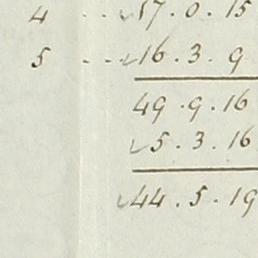 4 .. ✓17.0.15
5 .. ✓16.3.9
49.9.16
✓5.3.16
✓44.5.19